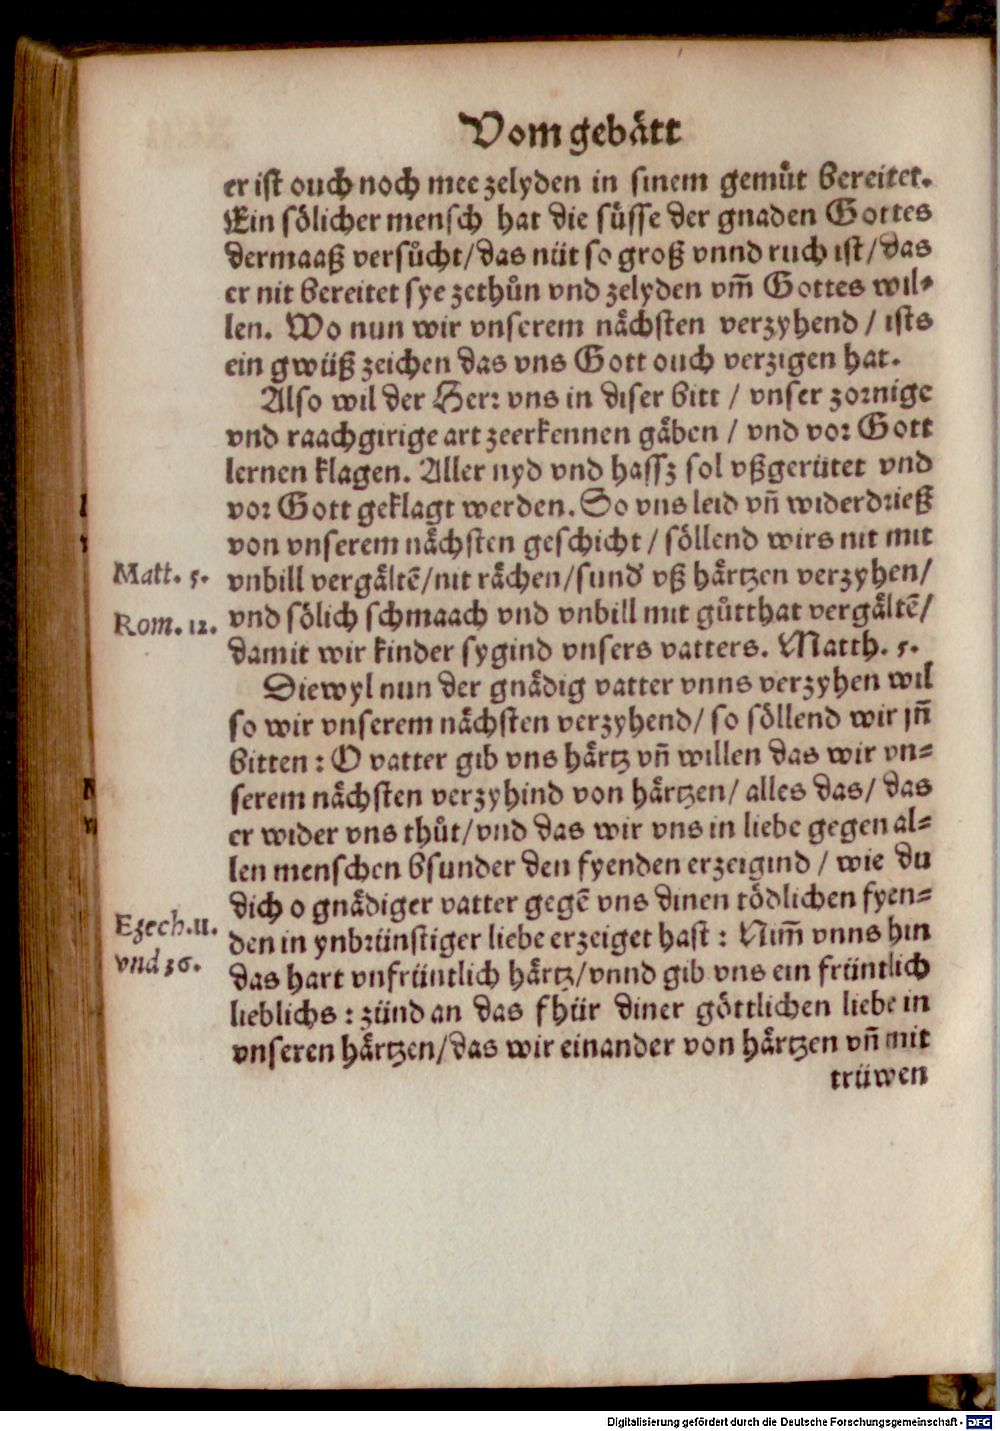 Vom gebått
er ist ouch noch mee zelyden in sinem gemůt bereitet.
Ein sölicher mensch hat die süsse der gnaden Gottes
dermaaß versůcht/das nüt so groß vnnd ruch ist/das
er nit bereitet sye zethůn vnd zelyden vm̃ Gottes wil-
len. Wo nun wir vnserem nächsten verzyhend / ists
ein gwüß zeichen das vns Gott ouch verzigen hat.
Also wil der Herr vns in diser bitt / vnser zornige
vnd raachgirige art zeerkennen gäben / vnd vor Gott
lernen klagen. Aller nyd vnd hassz sol vßgerütet vnd
vor Gott geklagt werden. So vns leid vñ widerdrieß
von vnserem nächsten geschicht / söllend wirs nit mit
Matt. 5. vnbill vergältẽ/nit rächen/sund' vß härtzen verzyhen/
Rom. 12. vnd sölich schmaach vnd vnbill mit gůtthat vergältẽ/
damit wir kinder sygind vnsers vatters. Matth. 5.
Diewyl nun der gnädig vatter vnns verzyhen wil
so wir vnserem nächsten verzyhend/ so söllend wir jñ
bitten : O vatter gib vns härtz vñ willen das wir vn=
serem nächsten verzyhind von härtzen/ alles das/ das
er wider vns thůt/vnd das wir vns in liebe gegen al=
len menschen bsunder den fyenden erzeigind / wie du
dich o gnädiger vatter gegẽ vns dinen tödlichen fyen=
Ezech.11. den in ynbrünstiger liebe erzeiget hast : Nim̃ vnns hin
vnd 36. das hart vnfrüntlich härtz/vnnd gib vns ein früntlich
lieblichs : zünd an das fhür diner göttlichen liebe in
vnseren härtzen/das wir einander von härtzen vñ mit
trüwen
Digitalisierung gefördert durch die Deutsche Forschungsgemeinschaft - DFG